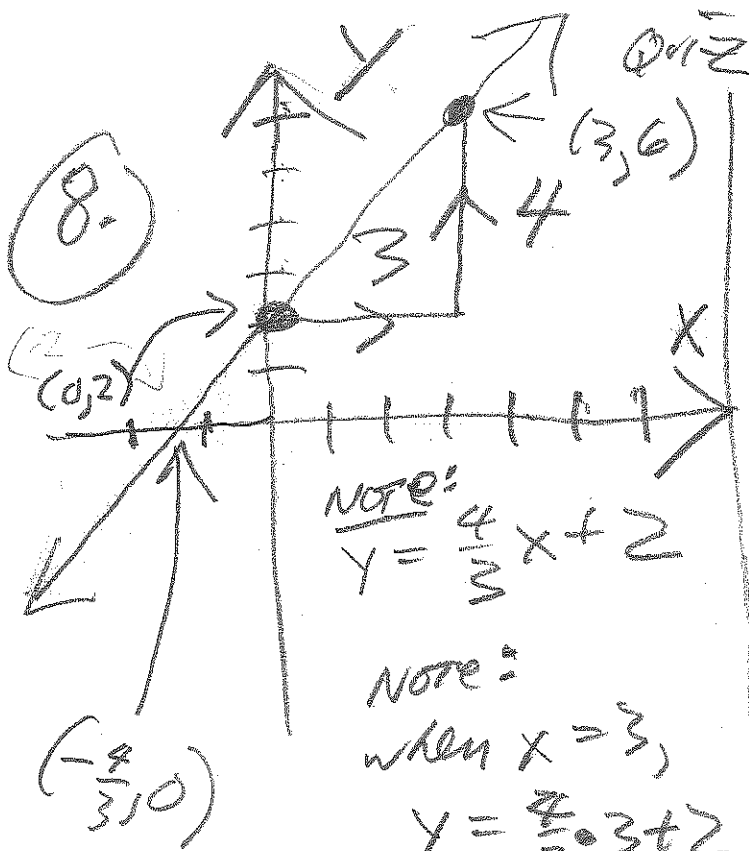 Y
Quiz
8.
(3,6)
4
3
(0,2)
X
NOTE:
Y = 4/3 X + 2
(-4/3, 0)
NOTE:
when x = 3,
Y = 4/3 • 3 + 2